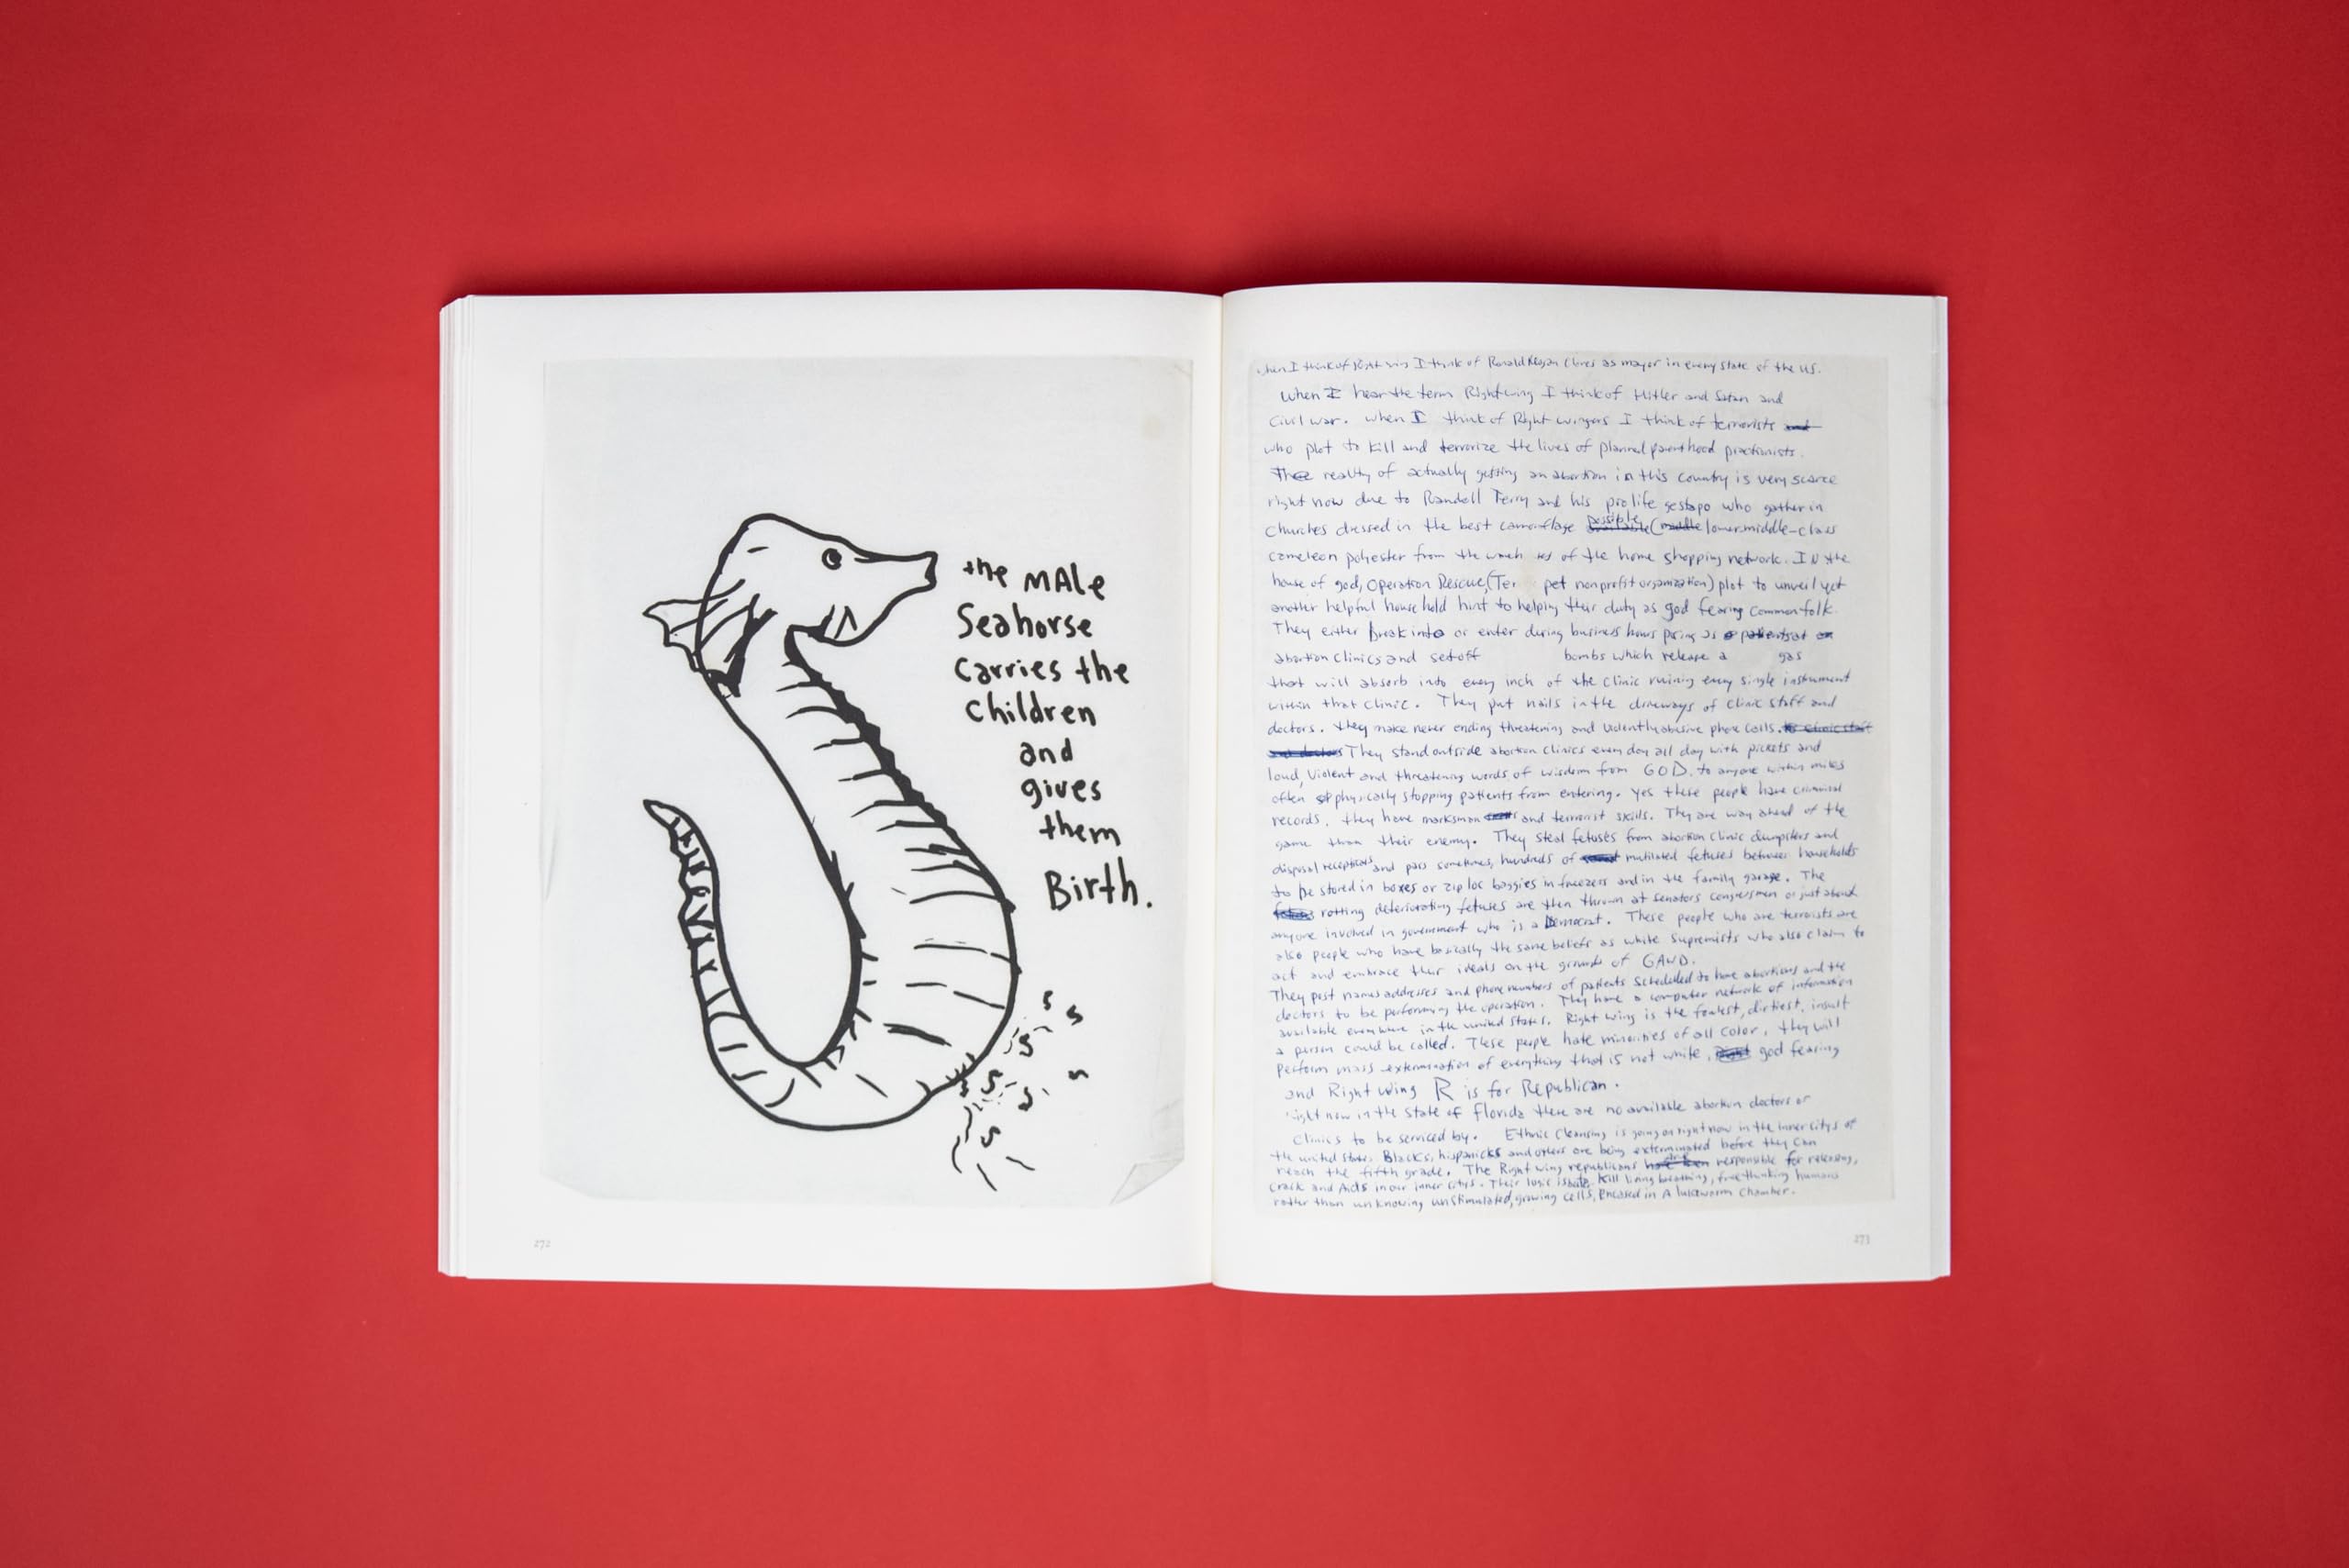 the MAle
Seahorse
carries the
Children
and
gives
them
Birth.
272
when I think of Right wing I think of Ronald Reagan Clones as mayor in every state of the US.
When I hear the term Right wing I think of Hitler and Satan and
Civil war. when I think of Right wingers I think of terrorists and
who plot to kill and terrorize the lives of planned parenthood practionists.
The reality of actually getting an abortion in this country is very scarce
right now due to Randell Terry and his pro life gestapo who gather in
Churches dressed in the best camouflage possible available (middle lower middle-class
cameleon polyester from the of the home shopping network. IN the
house of god, Operation Rescue, (Ter pet nonprofit organization) plot to unveil yet
another helpful household hint to helping their duty as god fearing common folk
They either break into or enter during business hours posing as a patients at an
abortion clinics and set off bombs which release a gas
that will absorb into every inch of the clinic ruining every single instrument
within that clinic. They put nails in the driveways of clinic staff and
doctors. they make never ending threatening and violently abusive phone calls. to clinic staff
and doctors They stand outside abortion clinics every day all day with pickets and
loud, violent and threatening words of wisdom from GOD. to anyone within miles
often physically stopping patients from entering. yes these people have criminal
records, they have marksman and terrorist skills. They are way ahead of the
game than their enemy. They steal fetuses from abortion clinic dumpsters and
disposal and pass sometimes, hundreds of mutilated fetuses between households
to be stored in boxes or zip loc baggies in freezers and in the family garage. The
rotting deteriorating fetuses are then thrown at senators congressmen or just about
anyone involved in government who is a Democrat. These people who are terroists are
also people who have basically the same beliefs as white Supremists who also claim to
act and embrace their ideals on the grounds of GAWD.
They post names addresses and phone numbers of patients scheduled to have abortions and the
doctors to be performing the operation. They have a computer network of information
available everywhere in the united states. Right wing is the foulest, dirtiest, insult
a person could be called. These people hate minorities of all color. they will
perform mass extermination of everything that is not white, god fearing
and Right wing R is for Republican.
right now in the state of Florida there are no available abortion doctors or
Clinics to be serviced by. Ethnic Cleansing is going on right now in the inner citys of
the united states. Blacks, hispanicks and others are being exterminated before they can
reach the fifth grade. The Right wing republicans are responsible for releasing,
crack and Aids in our inner citys. Their logic is kill living breathing, free thinking humans
rather than unknowing unstimulated, growing cells, Encased in A lukewarm chamber.
273